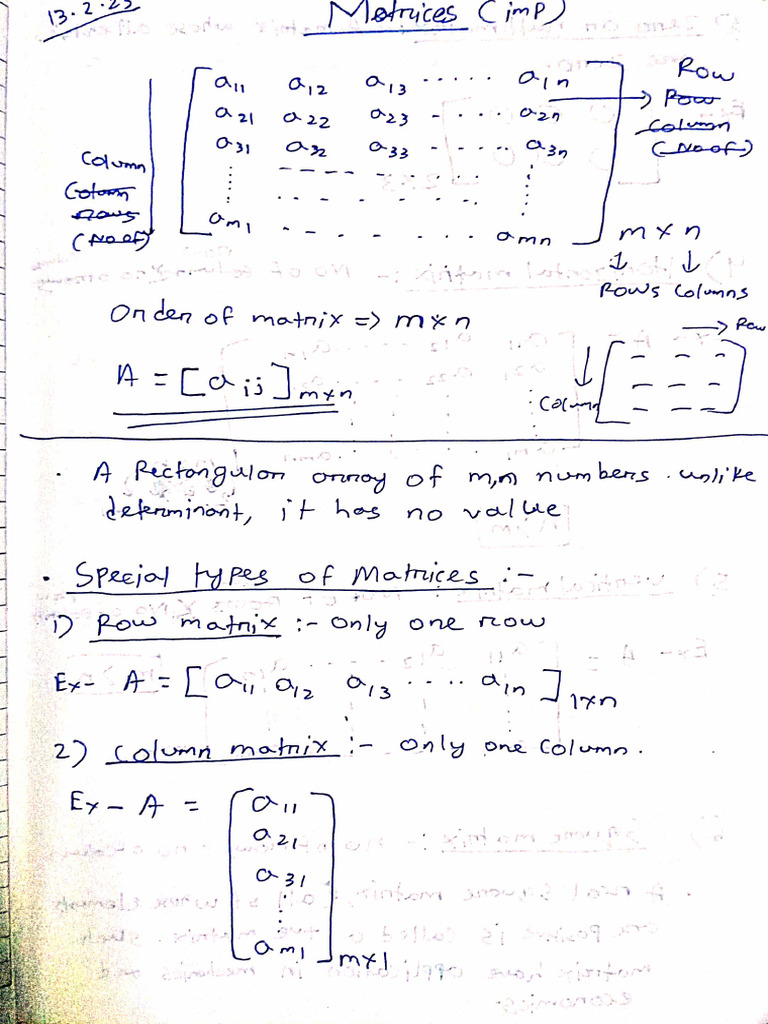 13.2.23
Matrices (imp)
a11 a12 a13 ..... a1n
a21 a22 a23 - ... a2n
a31 a32 a33 - .... a3n
am1 - - - - . . . amn
Row
Row
Column
(No of)
Column
Column
rows
(No of)
m × n
↓ ↓
Rows Columns
Order of matrix => m×n
A = [aij]m×n
→ Row
↓
Column
. A Rectangular array of m,n numbers. unlike
determinant, it has no value
. Special types of Matrices :-
1) Row matrix :- only one row
Ex- A = [a11 a12 a13 .... a1n]1×n
2) Column matrix :- only one column.
Ex - A = [a11
a21
a31
⋮
am1]m×1